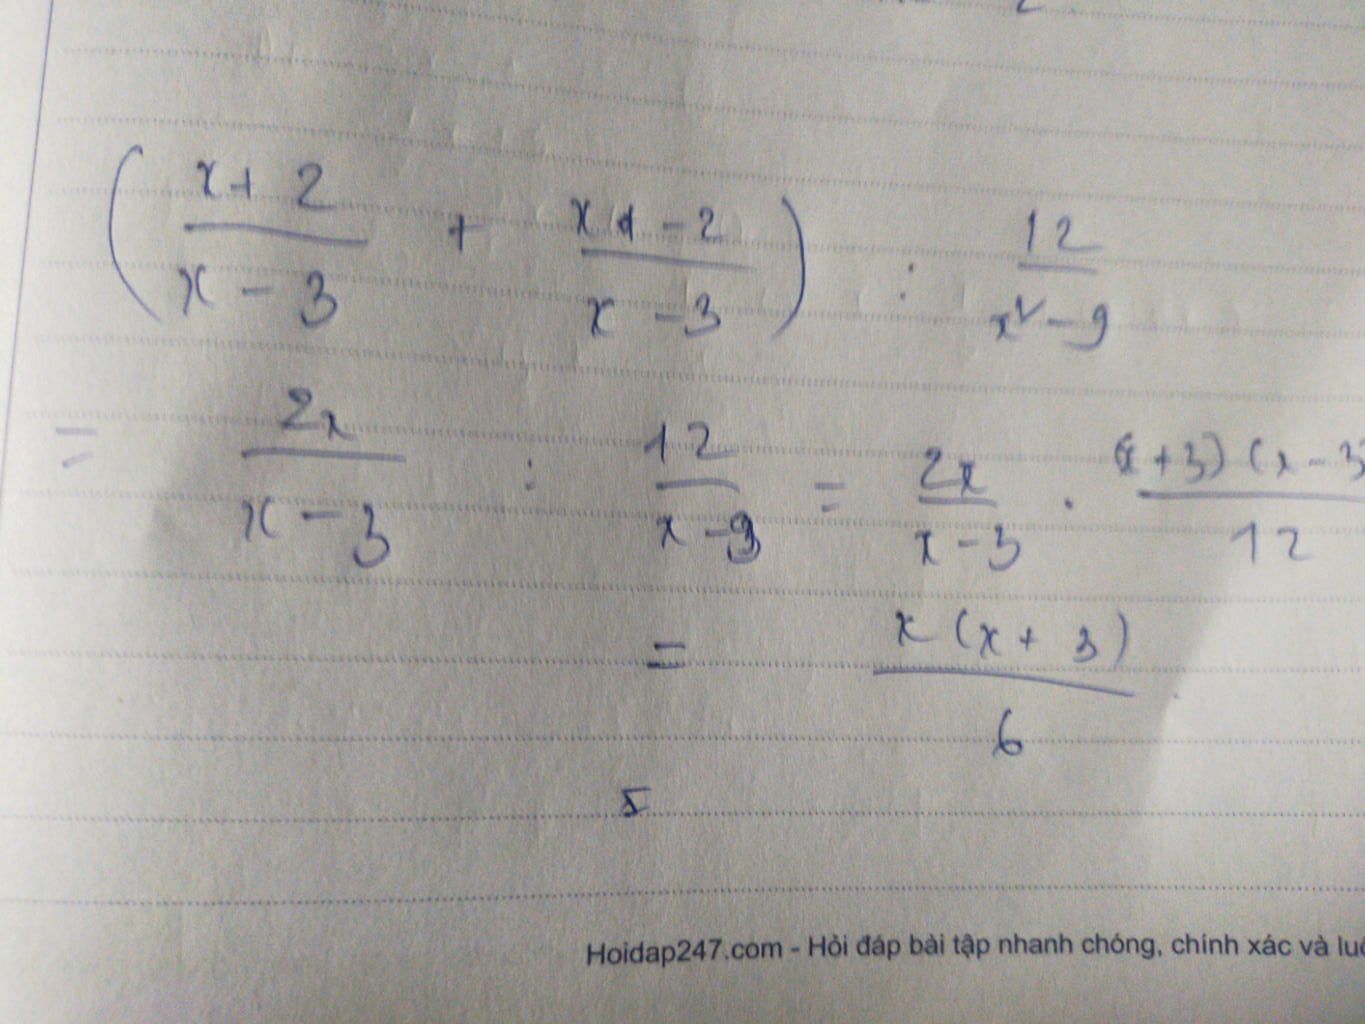 ( x + 2 / x - 3 + x - 2 / x - 3 ) : 12 / x² - 9
= 2x / x - 3 : 12 / x - 9 = 2x / x - 3 . (x + 3) (x - 3 / 12
= x (x + 3) / 6
Hoidap247.com - Hỏi đáp bài tập nhanh chóng, chính xác và luô